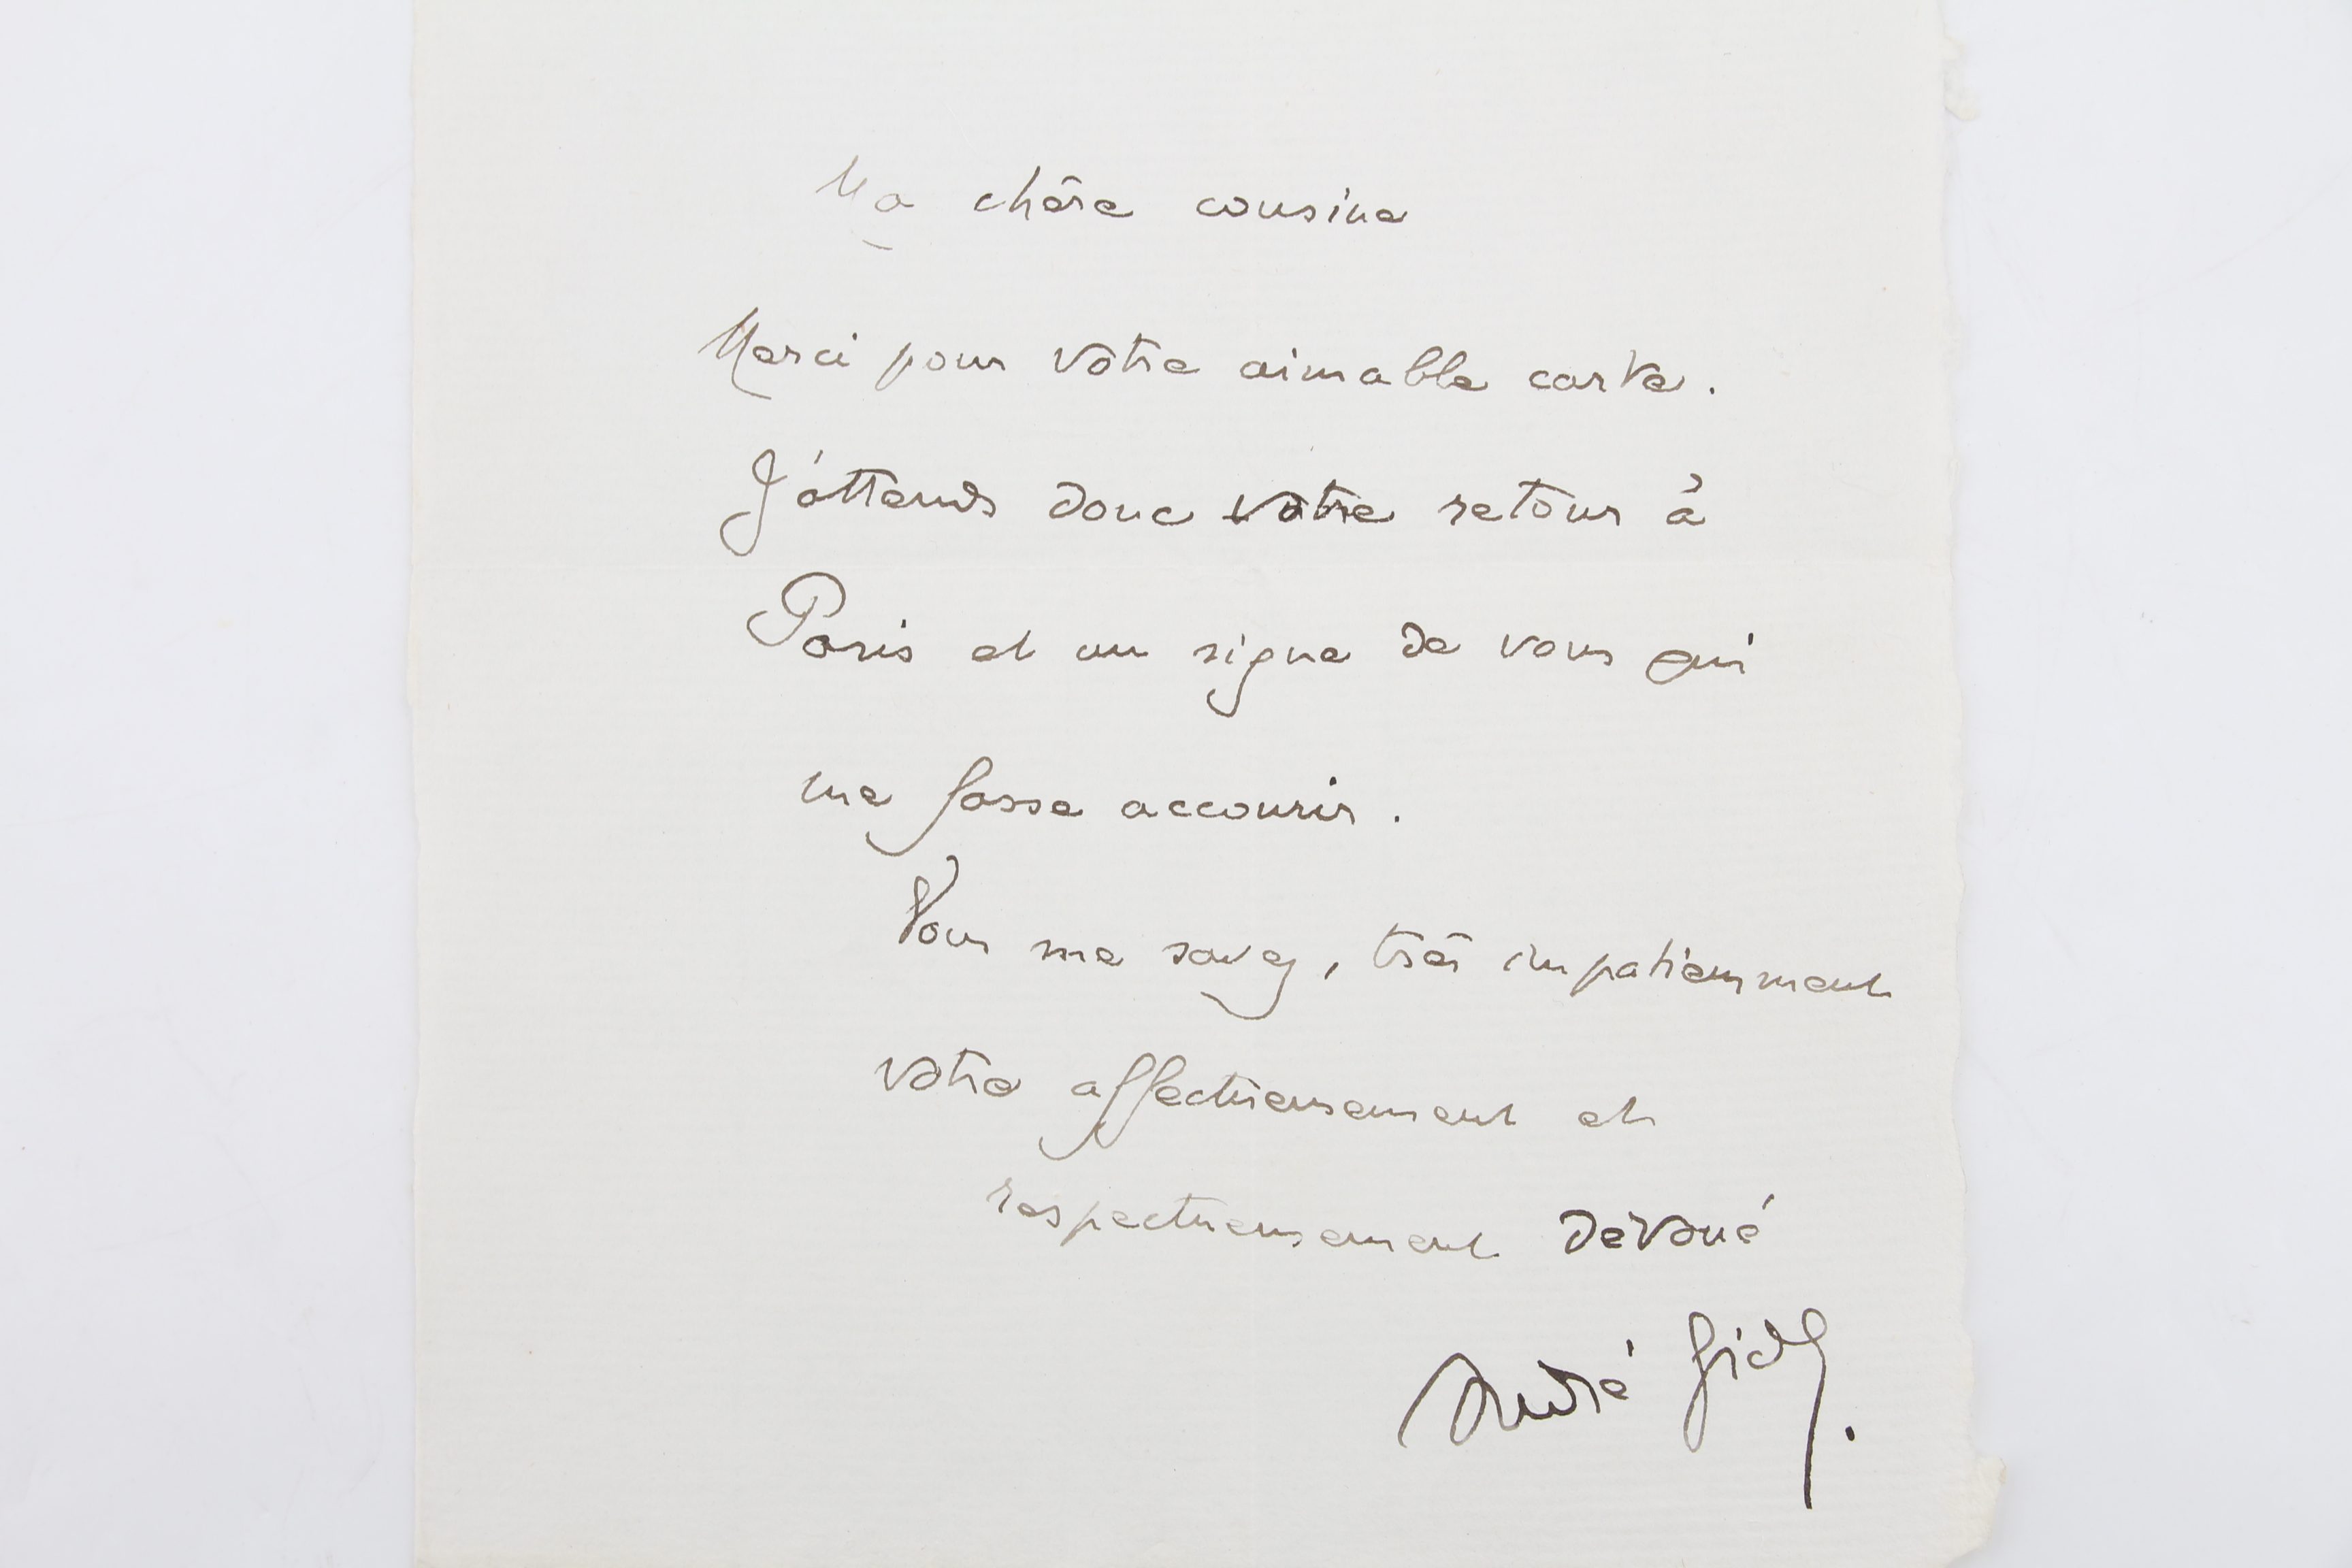 Ma chère cousine
Merci pour votre aimable carte.
J'attends donc votre retour à
Paris et un signe de vous qui
me fasse accourir.
Vous me savez, très impatiemment
votre affectueusement et
respectueusement dévoué
André Gide.